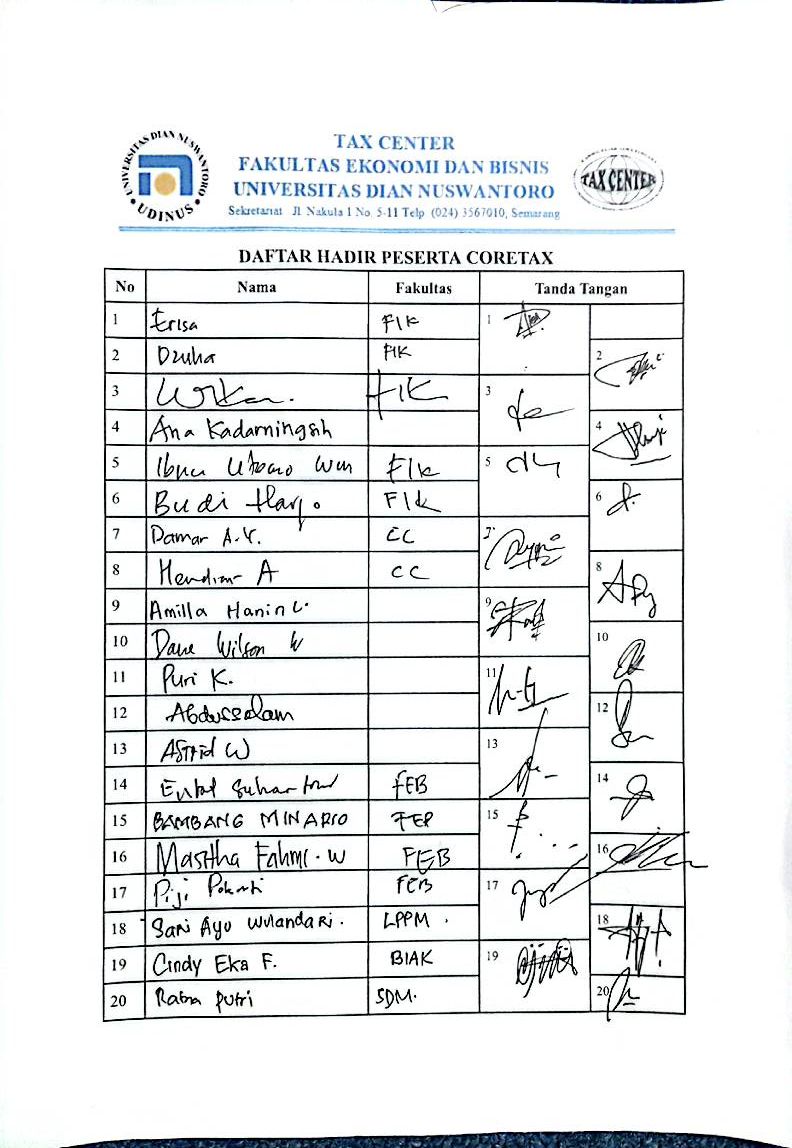 UNIVERSITAS DIAN NUSWANTORO
UDINUS
TAX CENTER
FAKULTAS EKONOMI DAN BISNIS
UNIVERSITAS DIAN NUSWANTORO
Sekretariat Jl. Nakula I No. 5-11 Telp (024) 3567010, Semarang
TAX CENTER
DAFTAR HADIR PESERTA CORETAX
No Nama Fakultas Tanda Tangan
1 Erisa FIK 1
2 Dzuha FIK 2
3 FIK 3
4 Ana Kadarningsih 4
5 Ibnu Utomo WM FIK 5
6 Budi Harjo FIK 6
7 Damar A.Y. CC 7
8 Hendian A CC 8
9 Amilla Hanin L. 9
10 Dave Wilson W 10
11 Puri K. 11
12 Abdussalam 12
13 Astrid W 13
14 Suhartono FEB 14
15 BAMBANG MINARIO FEB 15
16 Masitha Fahmi. W FEB 16
17 Piji Pakarti FEB 17
18 Sari Ayu Wulandari. LPPM. 18
19 Cindy Eka F. BIAK 19
20 Ratna Putri SDM. 20